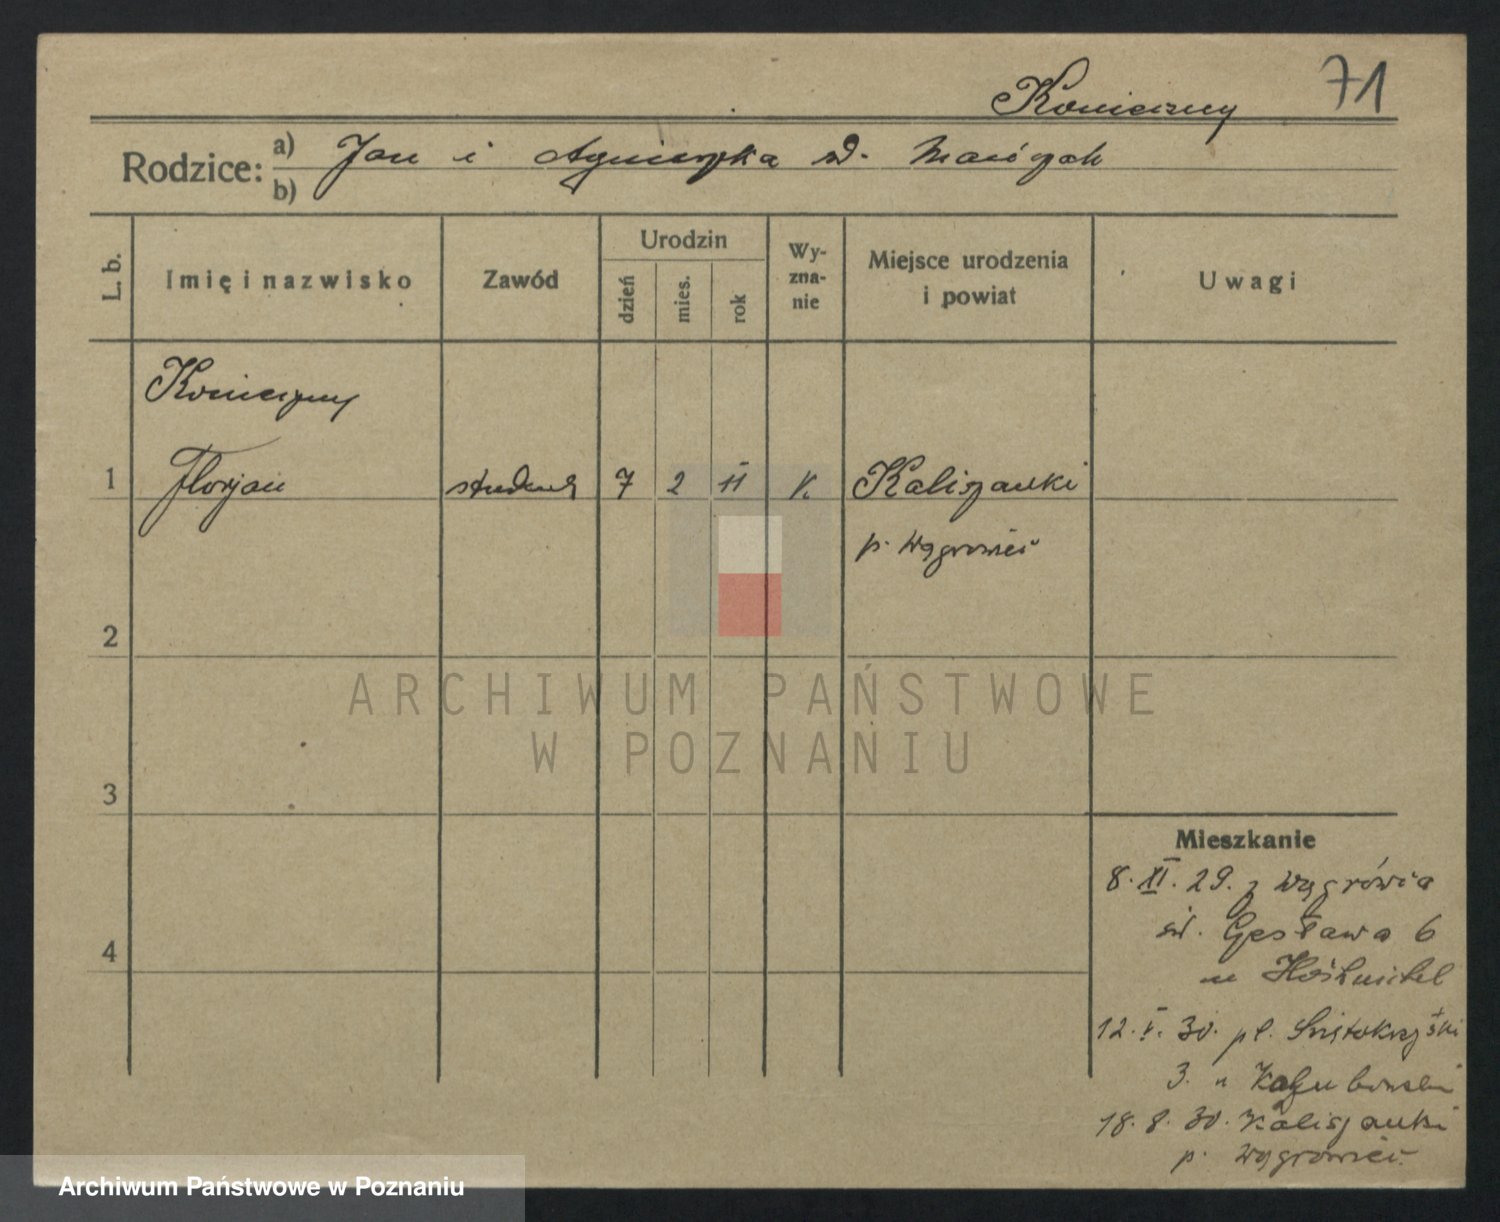 Konieczny 71
Rodzice: a) Jan i Agnieszka
b)
L. b.
Imię i nazwisko
Zawód
Urodzin
dzień
mies.
rok
Wy-
zna-
nie
Miejsce urodzenia
i powiat
Uwagi
Konieczny
1 Florjan student 7 2 11 K Kaliszanki
p. Wągrowiec
2
ARCHIWUM PAŃSTWOWE
W POZNANIU
3
4
Mieszkanie
8. XI. 29. z Wągrówca
6
12. V. 30. pl. Świętokrzyski
3.
18. 8. 30. Kaliszanki
p. Wągrowiec
Archiwum Państwowe w Poznaniu